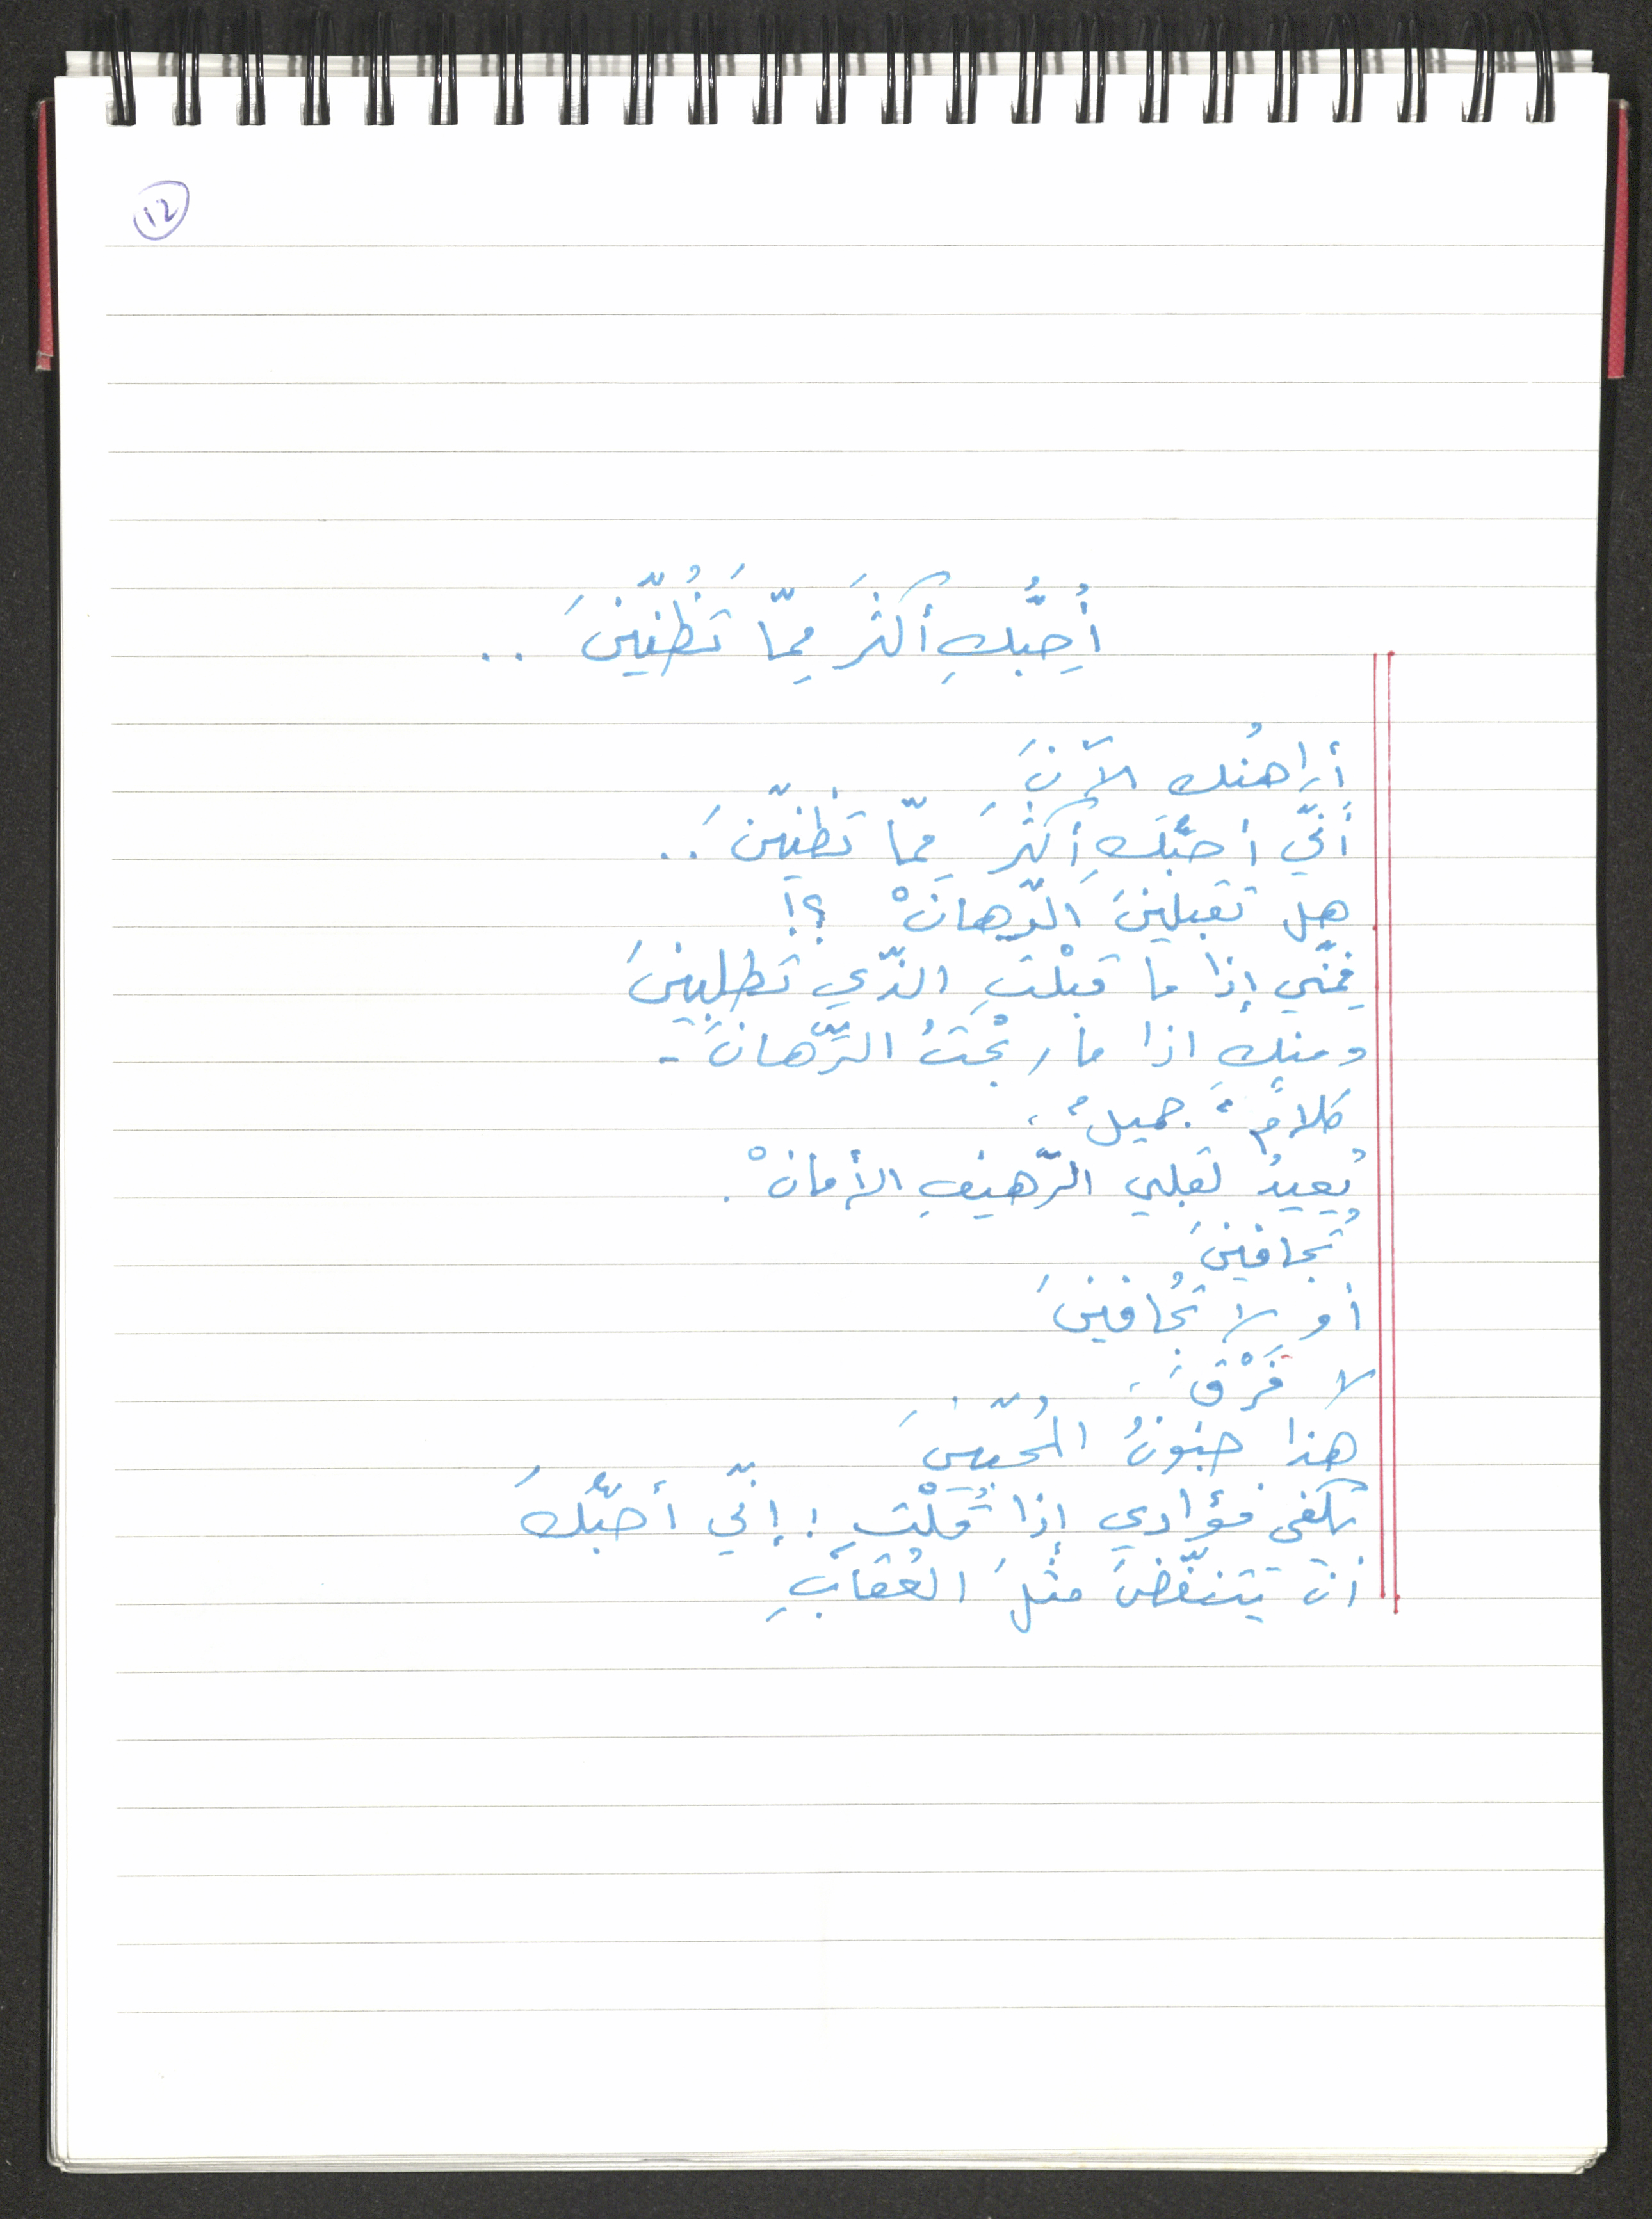 12
أُحِبُّكِ أكثَرَ مِمّا تَظُنّينَ ..
أراهنُك الآنَ
أنّي أحبُّكِ أكثرَ مِمّا تظنّينَ ..
هل تقبلينَ الرّهانْ ؟!
فمنّي إذا ما قبلْتِ الذّي تطلبينَ
ومنكِ اذا ما ربحْتُ الرِّهانَ -
كلامٌ جميلٌ ،
يُعيدُ لقلبي الرّهيفِ الأمانْ .
تُجافينَ
أو لا تُجافينَ
لا فَرْقَ ،
هذا جنونُ المُحبّينَ
يكفي فؤادي إذا قُلْتِ : إنّي أحبُّكَ
أن يَتنفّضَ مثلَ العُقابِ